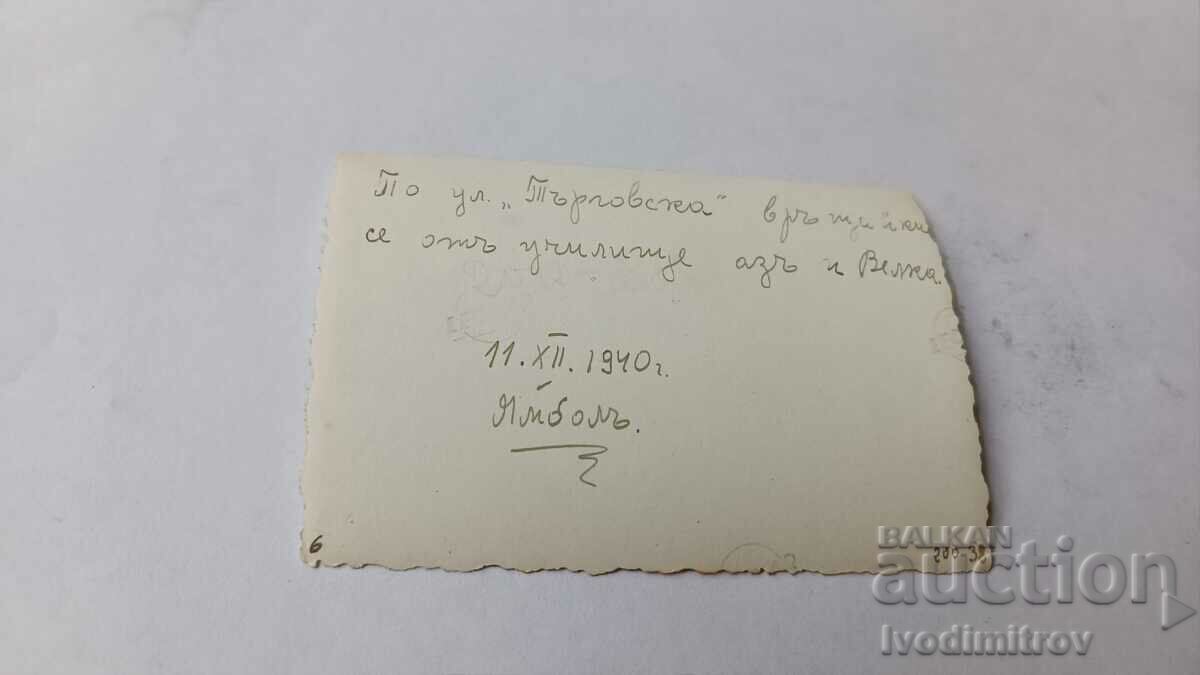 По ул. „Търговска" връщайки
се отъ училище азъ и Велка.
11. XII. 1940 г.
Ямболъ.
6
200-38
BALKAN
auction
Ivodimitrov